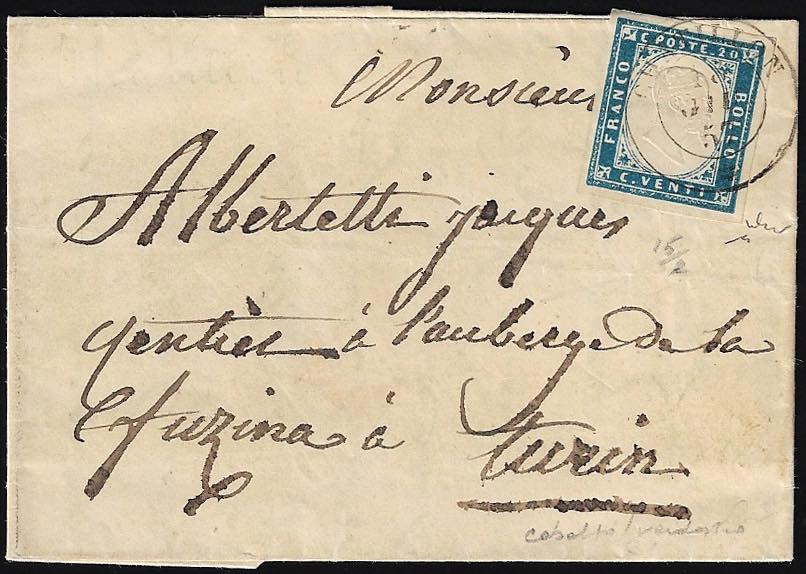 C. POSTE. 20
FRANCO
BOLLO
C. VENTI
Monsieur
Albertetti jaques
gentier à l'auberge de la
fuzina à turin
15/2
cobalto verdastro